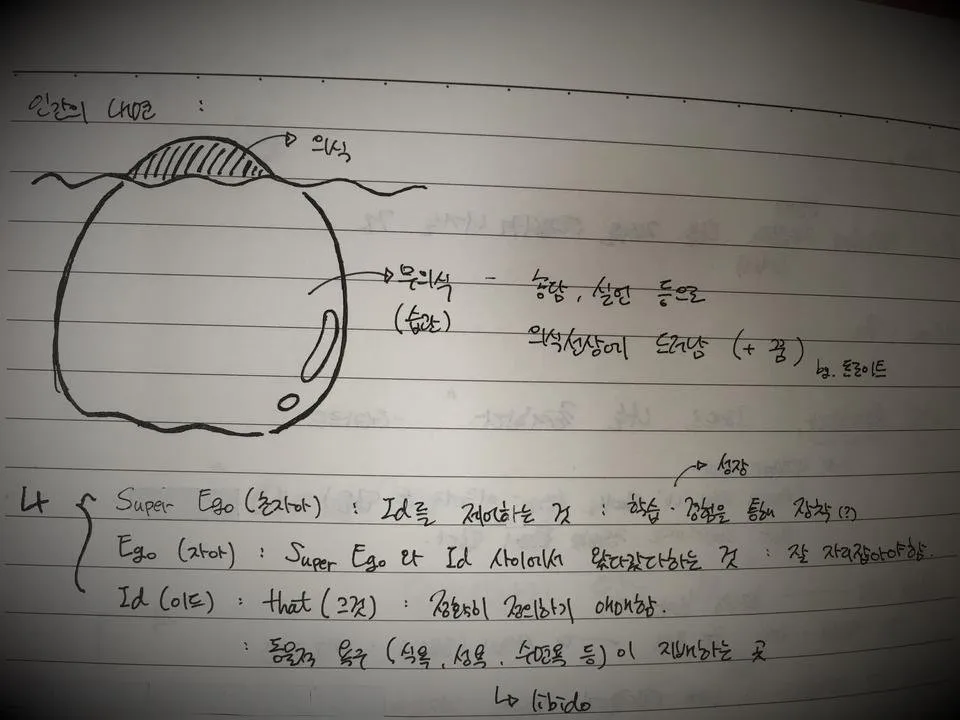 인간의 내면 :
의식
무의식 - 농담, 실언 등으로
(습관)
의식선상에 드러남 (+ 꿈)
by. 프로이트
↳ { → 성장
Super Ego (초자아) : Id를 제어하는 것 : 학습 · 경험을 통해 장착(?)
Ego (자아) : Super Ego와 Id 사이에서 왔다갔다하는 것 : 잘 자리잡아야함.
Id (이드) : that (그것) : 정확히 정의하기 애매함.
: 동물적 욕구 (식욕, 성욕, 수면욕 등)이 지배하는 곳
↳ libido